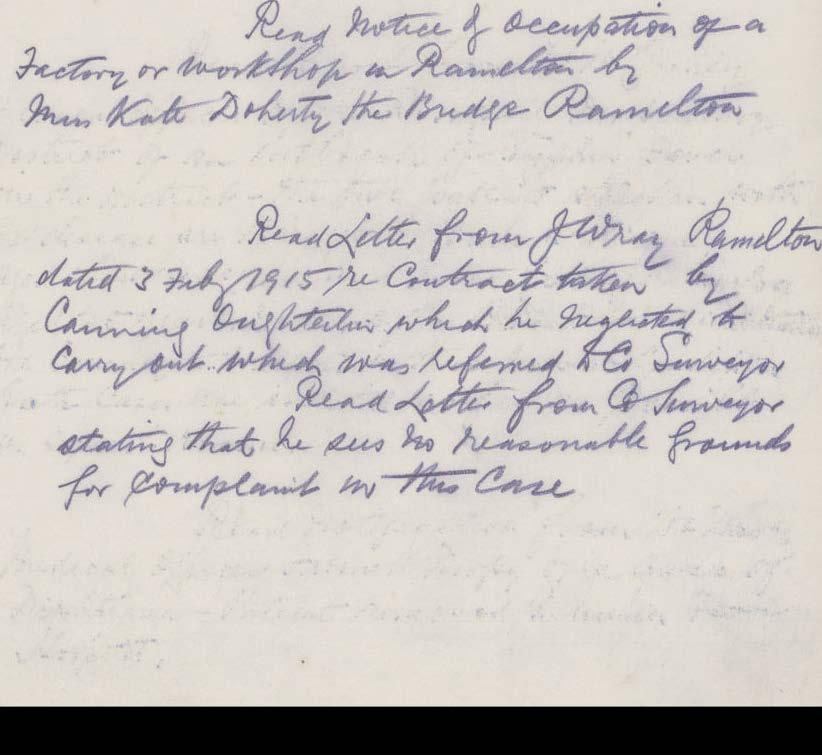 Read Notice of Occupation of a
Factory or Workshop in Ramelton by
Mrs Kate Doherty the Bridge Ramelton
Read Letter from J Wray Ramelton
dated 3 Feby 1915 re Contract taken by
Canning Oughterlin which he neglected to
carry out which was referred to Co Surveyor
Read Letter from Co Surveyor
stating that he sees no reasonable grounds
for Complaint in this Case